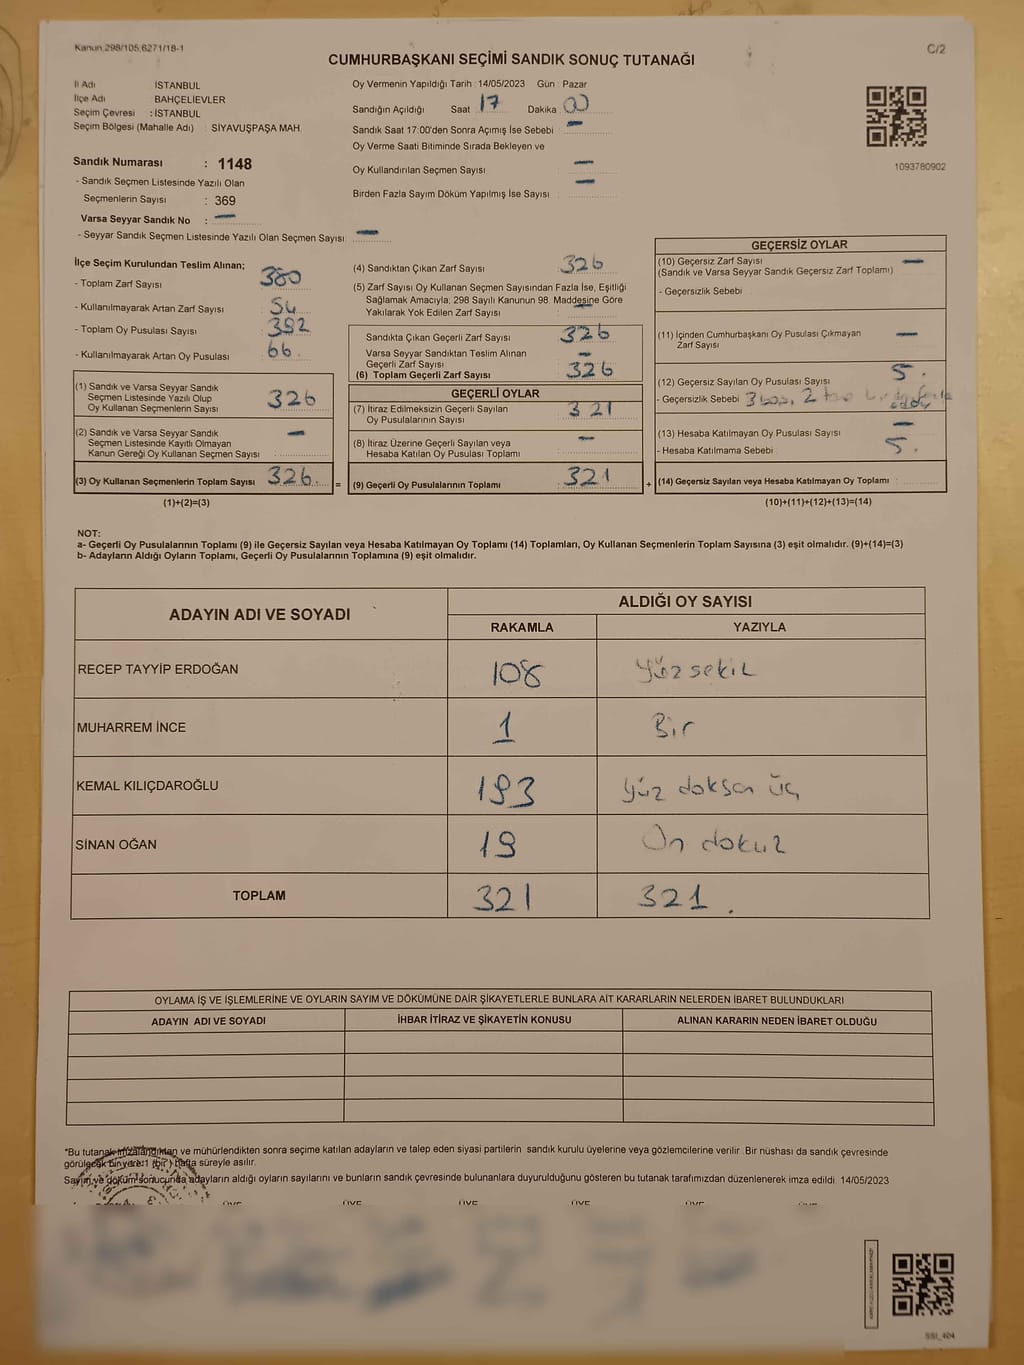 Kanun 298/105.6271/18-1
C/2
CUMHURBAŞKANI SEÇİMİ SANDIK SONUÇ TUTANAĞI
İl Adı İSTANBUL
İlçe Adı BAHÇELİEVLER
Seçim Çevresi : İSTANBUL
Seçim Bölgesi (Mahalle Adı) : SİYAVUŞPAŞA MAH.
Sandık Numarası : 1148
- Sandık Seçmen Listesinde Yazılı Olan
Seçmenlerin Sayısı : 369
Varsa Seyyar Sandık No : —
- Seyyar Sandık Seçmen Listesinde Yazılı Olan Seçmen Sayısı: —
Oy Vermenin Yapıldığı Tarih : 14/05/2023 Gün : Pazar
Sandığın Açıldığı Saat 17 Dakika 00
Sandık Saat 17:00'den Sonra Açımış İse Sebebi —
Oy Verme Saati Bitiminde Sırada Bekleyen ve
Oy Kullandırılan Seçmen Sayısı —
Birden Fazla Sayım Döküm Yapılmış İse Sayısı —
1093780902
İlçe Seçim Kurulundan Teslim Alınan;
- Toplam Zarf Sayısı 380
- Kullanılmayarak Artan Zarf Sayısı 54
- Toplam Oy Pusulası Sayısı 392
- Kullanılmayarak Artan Oy Pusulası 66
(1) Sandık ve Varsa Seyyar Sandık
Seçmen Listesinde Yazılı Olup
Oy Kullanan Seçmenlerin Sayısı 326
(2) Sandık ve Varsa Seyyar Sandık
Seçmen Listesinde Kayıtlı Olmayan
Kanun Gereği Oy Kullanan Seçmen Sayısı —
(3) Oy Kullanan Seçmenlerin Toplam Sayısı 326
(1)+(2)=(3)
(4) Sandıktan Çıkan Zarf Sayısı 326
(5) Zarf Sayısı Oy Kullanan Seçmen Sayısından Fazla İse, Eşitliği
Sağlamak Amacıyla, 298 Sayılı Kanunun 98. Maddesine Göre
Yakılarak Yok Edilen Zarf Sayısı —
Sandıkta Çıkan Geçerli Zarf Sayısı 326
Varsa Seyyar Sandıktan Teslim Alınan
Geçerli Zarf Sayısı —
(6) Toplam Geçerli Zarf Sayısı 326
GEÇERLİ OYLAR
(7) İtiraz Edilmeksizin Geçerli Sayılan
Oy Pusulalarının Sayısı 321
(8) İtiraz Üzerine Geçerli Sayılan veya
Hesaba Katılan Oy Pusulası Toplamı —
= (9) Geçerli Oy Pusulalarının Toplamı 321 +
GEÇERSİZ OYLAR
(10) Geçersiz Zarf Sayısı —
(Sandık ve Varsa Seyyar Sandık Geçersiz Zarf Toplamı)
- Geçersizlik Sebebi
(11) İçinden Cumhurbaşkanı Oy Pusulası Çıkmayan
Zarf Sayısı —
(12) Geçersiz Sayılan Oy Pusulası Sayısı 5.
- Geçersizlik Sebebi 3 boş, 2
(13) Hesaba Katılmayan Oy Pusulası Sayısı —
- Hesaba Katılmama Sebebi 5.
(14) Geçersiz Sayılan veya Hesaba Katılmayan Oy Toplamı
(10)+(11)+(12)+(13)=(14)
NOT:
a- Geçerli Oy Pusulalarının Toplamı (9) ile Geçersiz Sayılan veya Hesaba Katılmayan Oy Toplamı (14) Toplamları, Oy Kullanan Seçmenlerin Toplam Sayısına (3) eşit olmalıdır. (9)+(14)=(3)
b- Adayların Aldığı Oyların Toplamı, Geçerli Oy Pusulalarının Toplamına (9) eşit olmalıdır.
ADAYIN ADI VE SOYADI ALDIĞI OY SAYISI
RAKAMLA YAZIYLA
RECEP TAYYİP ERDOĞAN 108 Yüz sekiz
MUHARREM İNCE 1 Bir
KEMAL KILIÇDAROĞLU 193 yüz doksan üç
SİNAN OĞAN 19 On dokuz
TOPLAM 321 321.
OYLAMA İŞ VE İŞLEMLERİNE VE OYLARIN SAYIM VE DÖKÜMÜNE DAİR ŞİKAYETLERLE BUNLARA AİT KARARLARIN NELERDEN İBARET BULUNDUKLARI
ADAYIN ADI VE SOYADI İHBAR İTİRAZ VE ŞİKAYETİN KONUSU ALINAN KARARIN NEDEN İBARET OLDUĞU
*Bu tutanak imzalandıktan ve mühürlendikten sonra seçime katılan adayların ve talep eden siyasi partilerin sandık kurulu üyelerine veya gözlemcilerine verilir. Bir nüshası da sandık çevresinde
görülecek bir yere 1 (bir) hafta süreyle asılır.
Sayım ve döküm sonucunda adayların aldığı oyların sayılarını ve bunların sandık çevresinde bulunanlara duyurulduğunu gösteren bu tutanak tarafımızdan düzenlenerek imza edildi. 14/05/2023
ÜYE ÜYE ÜYE ÜYE ÜYE ÜYE
SSI_404